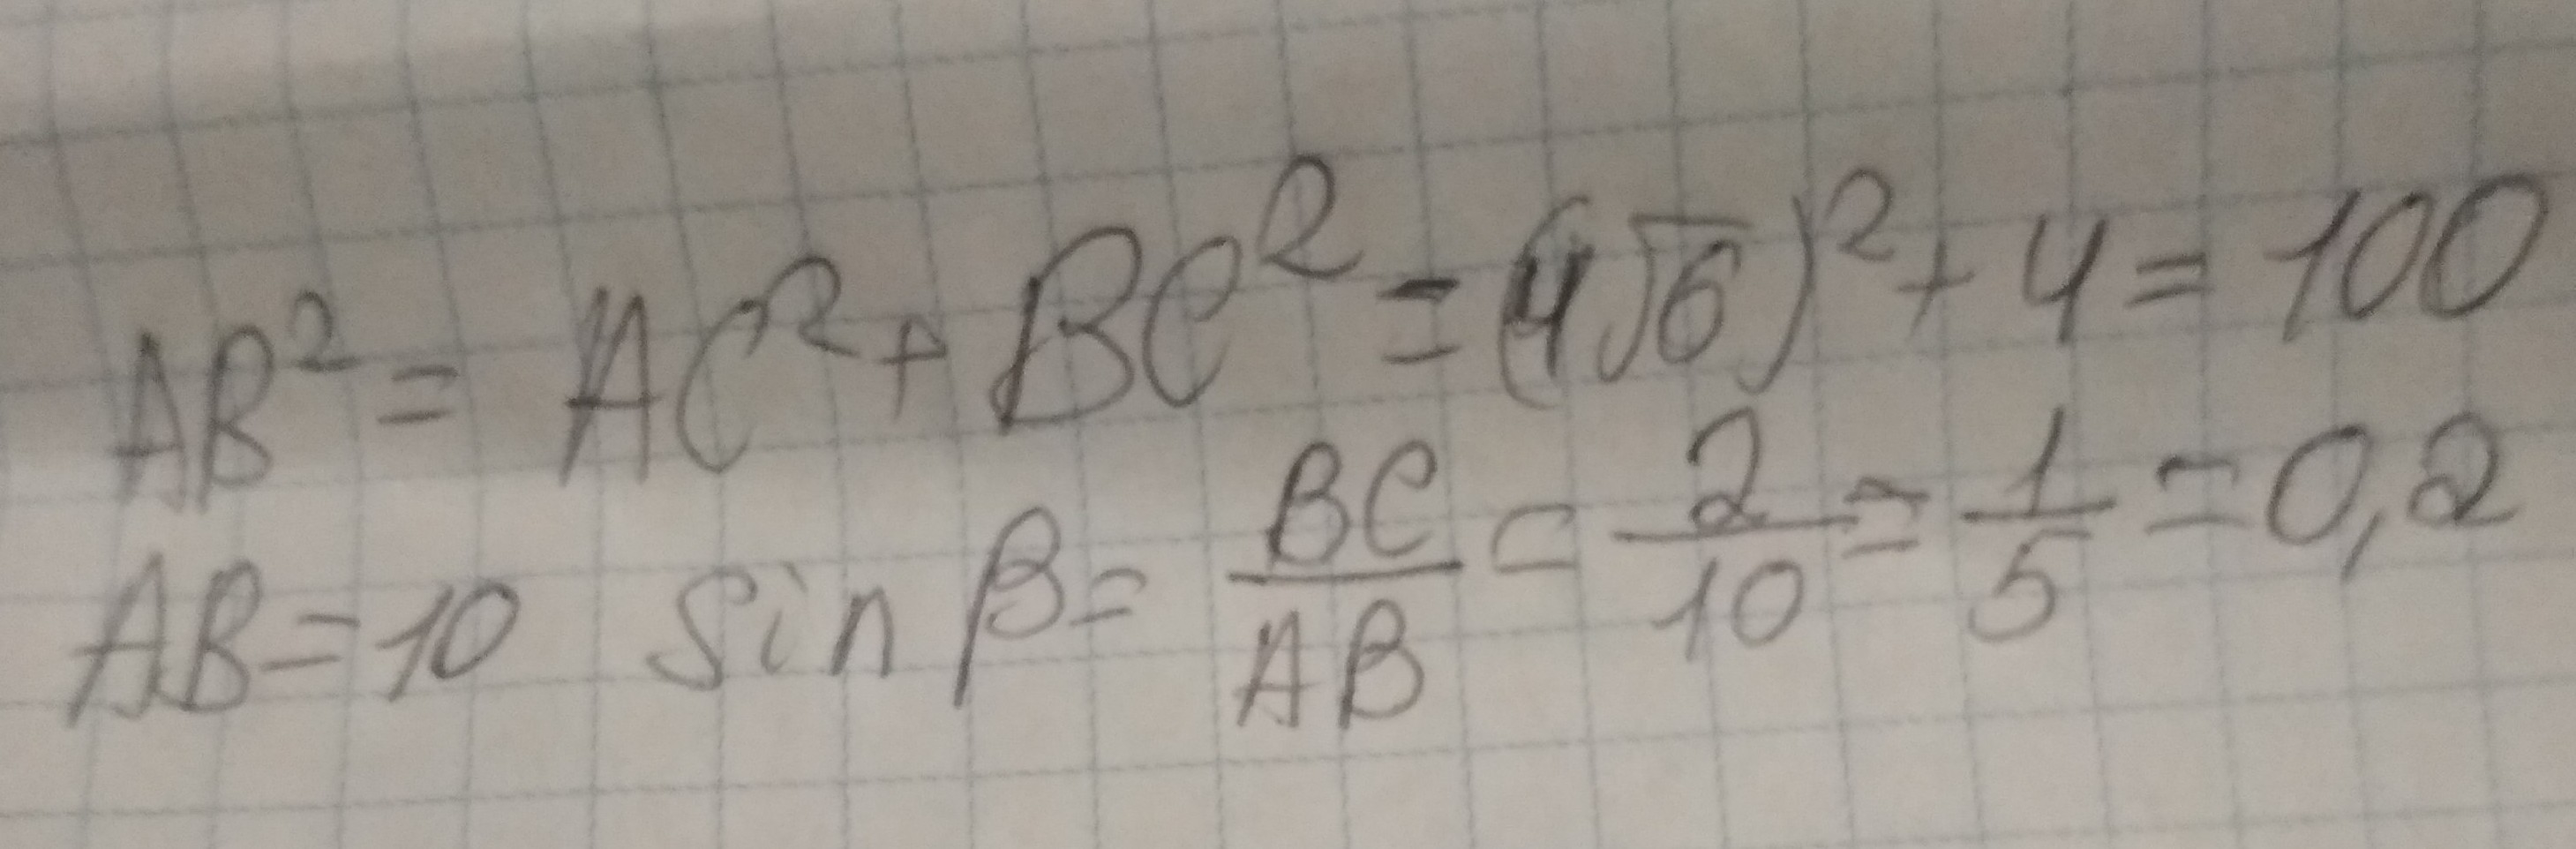 AB² = AC² + BC² = (4√6)² + 4 = 100
AB = 10 sin β = BC/AB = 2/10 = 1/5 = 0,2